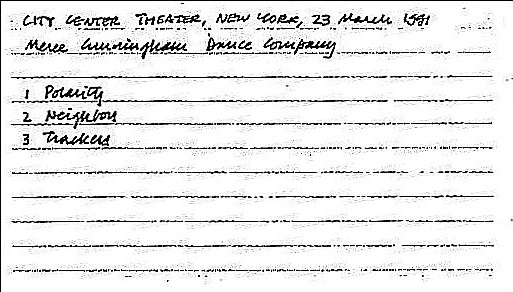 CITY CENTER THEATER, NEW YORK, 23 March 1991
Merce Cunningham Dance Company
1 Polarity
2 Neighbors
3 Trackers